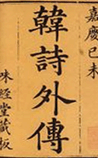 嘉慶己未
韓詩外傳
味經堂藏板